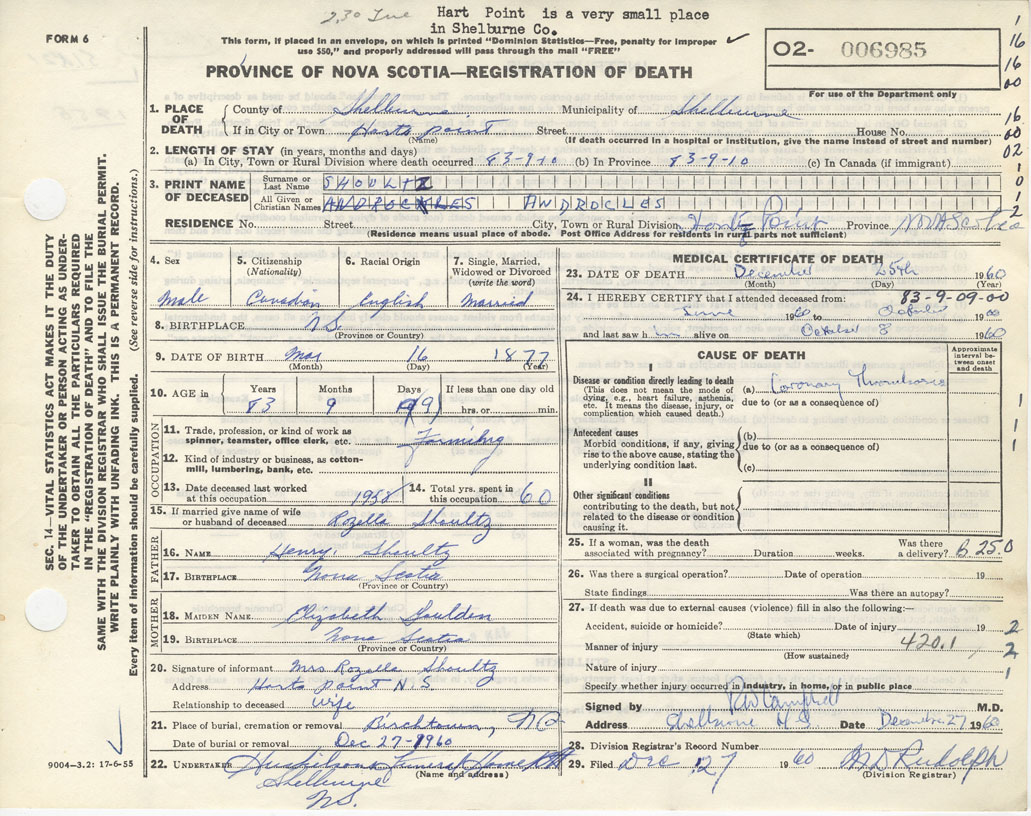 2.30
Hart Point is a very small place
in Shelburne Co.
FORM 6
This form, if placed in an envelope, on which is printed "Dominion Statistics—Free, penalty for improper
use $50," and properly addressed will pass through the mail "FREE"
PROVINCE OF NOVA SCOTIA—REGISTRATION OF DEATH
O2- 006985
For use of the Department only
1. PLACE OF DEATH County of Shelburne Municipality of Shelburne
If in City or Town Harts point Street House No.
(Name) (If death occurred in a hospital or institution, give the name instead of street and number)
2. LENGTH OF STAY (in years, months and days)
(a) In City, Town or Rural Division where death occurred 83-9-10 (b) In Province 83-9-10 (c) In Canada (if immigrant)
3. PRINT NAME OF DECEASED Surname or Last Name SHOULTZ
All Given or Christian Names ANDROCKLES ANDROCLES
RESIDENCE No. Street City, Town or Rural Division Harts Point Province NOVA Scotia
(Residence means usual place of abode. Post Office Address for residents in rural parts not sufficient)
4. Sex Male
5. Citizenship (Nationality) Canadian
6. Racial Origin English
7. Single, Married, Widowed or Divorced (write the word) Married
8. BIRTHPLACE N.S.
(Province or Country)
9. DATE OF BIRTH Mar 16 1877
(Month) (Day) (Year)
10. AGE in Years Months Days If less than one day old
83 9 9 hrs. or min.
OCCUPATION
11. Trade, profession, or kind of work as spinner, teamster, office clerk, etc. Farming
12. Kind of industry or business, as cotton-mill, lumbering, bank, etc.
13. Date deceased last worked at this occupation 1958
14. Total yrs. spent in this occupation 60
15. If married give name of wife or husband of deceased Rozella Shoultz
FATHER
16. NAME Henry Shoultz
17. BIRTHPLACE Nova Scotia
(Province or Country)
MOTHER
18. MAIDEN NAME Elizabeth Goulden
19. BIRTHPLACE Nova Scotia
(Province or Country)
20. Signature of informant Mrs Rozella Shoultz
Address Harts point N.S.
Relationship to deceased wife
21. Place of burial, cremation or removal Birchtown, NS
Date of burial or removal Dec 27-1960
22. UNDERTAKER Funeral Home
(Name and address)
Shelburne
N.S.
MEDICAL CERTIFICATE OF DEATH
23. DATE OF DEATH December 25th 1960
(Month) (Day) (Year)
24. I HEREBY CERTIFY that I attended deceased from: 83-9-09-00
June 1960 to October 1960
and last saw him alive on October 8 1960
CAUSE OF DEATH
Approximate interval between onset and death
I
Disease or condition directly leading to death
(This does not mean the mode of dying, e.g., heart failure, asthenia, etc. It means the disease, injury, or complication which caused death.)
(a) Coronary Thrombosis
due to (or as a consequence of)
Antecedent causes
Morbid conditions, if any, giving rise to the above cause, stating the underlying condition last.
(b)
due to (or as a consequence of)
(c)
II
Other significant conditions contributing to the death, but not related to the disease or condition causing it.
25. If a woman, was the death associated with pregnancy? Duration weeks. Was there a delivery? B 25.0
26. Was there a surgical operation? Date of operation 19
State findings Was there an autopsy?
27. If death was due to external causes (violence) fill in also the following:—
Accident, suicide or homicide? Date of injury 19
(State which)
Manner of injury 420.1
(How sustained)
Nature of injury
Specify whether injury occurred in industry, in home, or in public place
Signed by Campbell M.D.
Address Shelburne N.S. Date December 27 1960
28. Division Registrar's Record Number
29. Filed Dec 27 1960 Rudolph
(Division Registrar)
SEC. 14—VITAL STATISTICS ACT MAKES IT THE DUTY
OF THE UNDERTAKER OR PERSON ACTING AS UNDER-
TAKER TO OBTAIN ALL THE PARTICULARS REQUIRED
IN THE "REGISTRATION OF DEATH" AND TO FILE THE
SAME WITH THE DIVISION REGISTRAR WHO SHALL ISSUE THE BURIAL PERMIT.
WRITE PLAINLY WITH UNFADING INK. THIS IS A PERMANENT RECORD.
Every item of information should be carefully supplied. (See reverse side for instructions.)
9004—3.2: 17-6-55
1
16
16
00
16
00
02
1
0
1
2
1
1
1
2
2
1